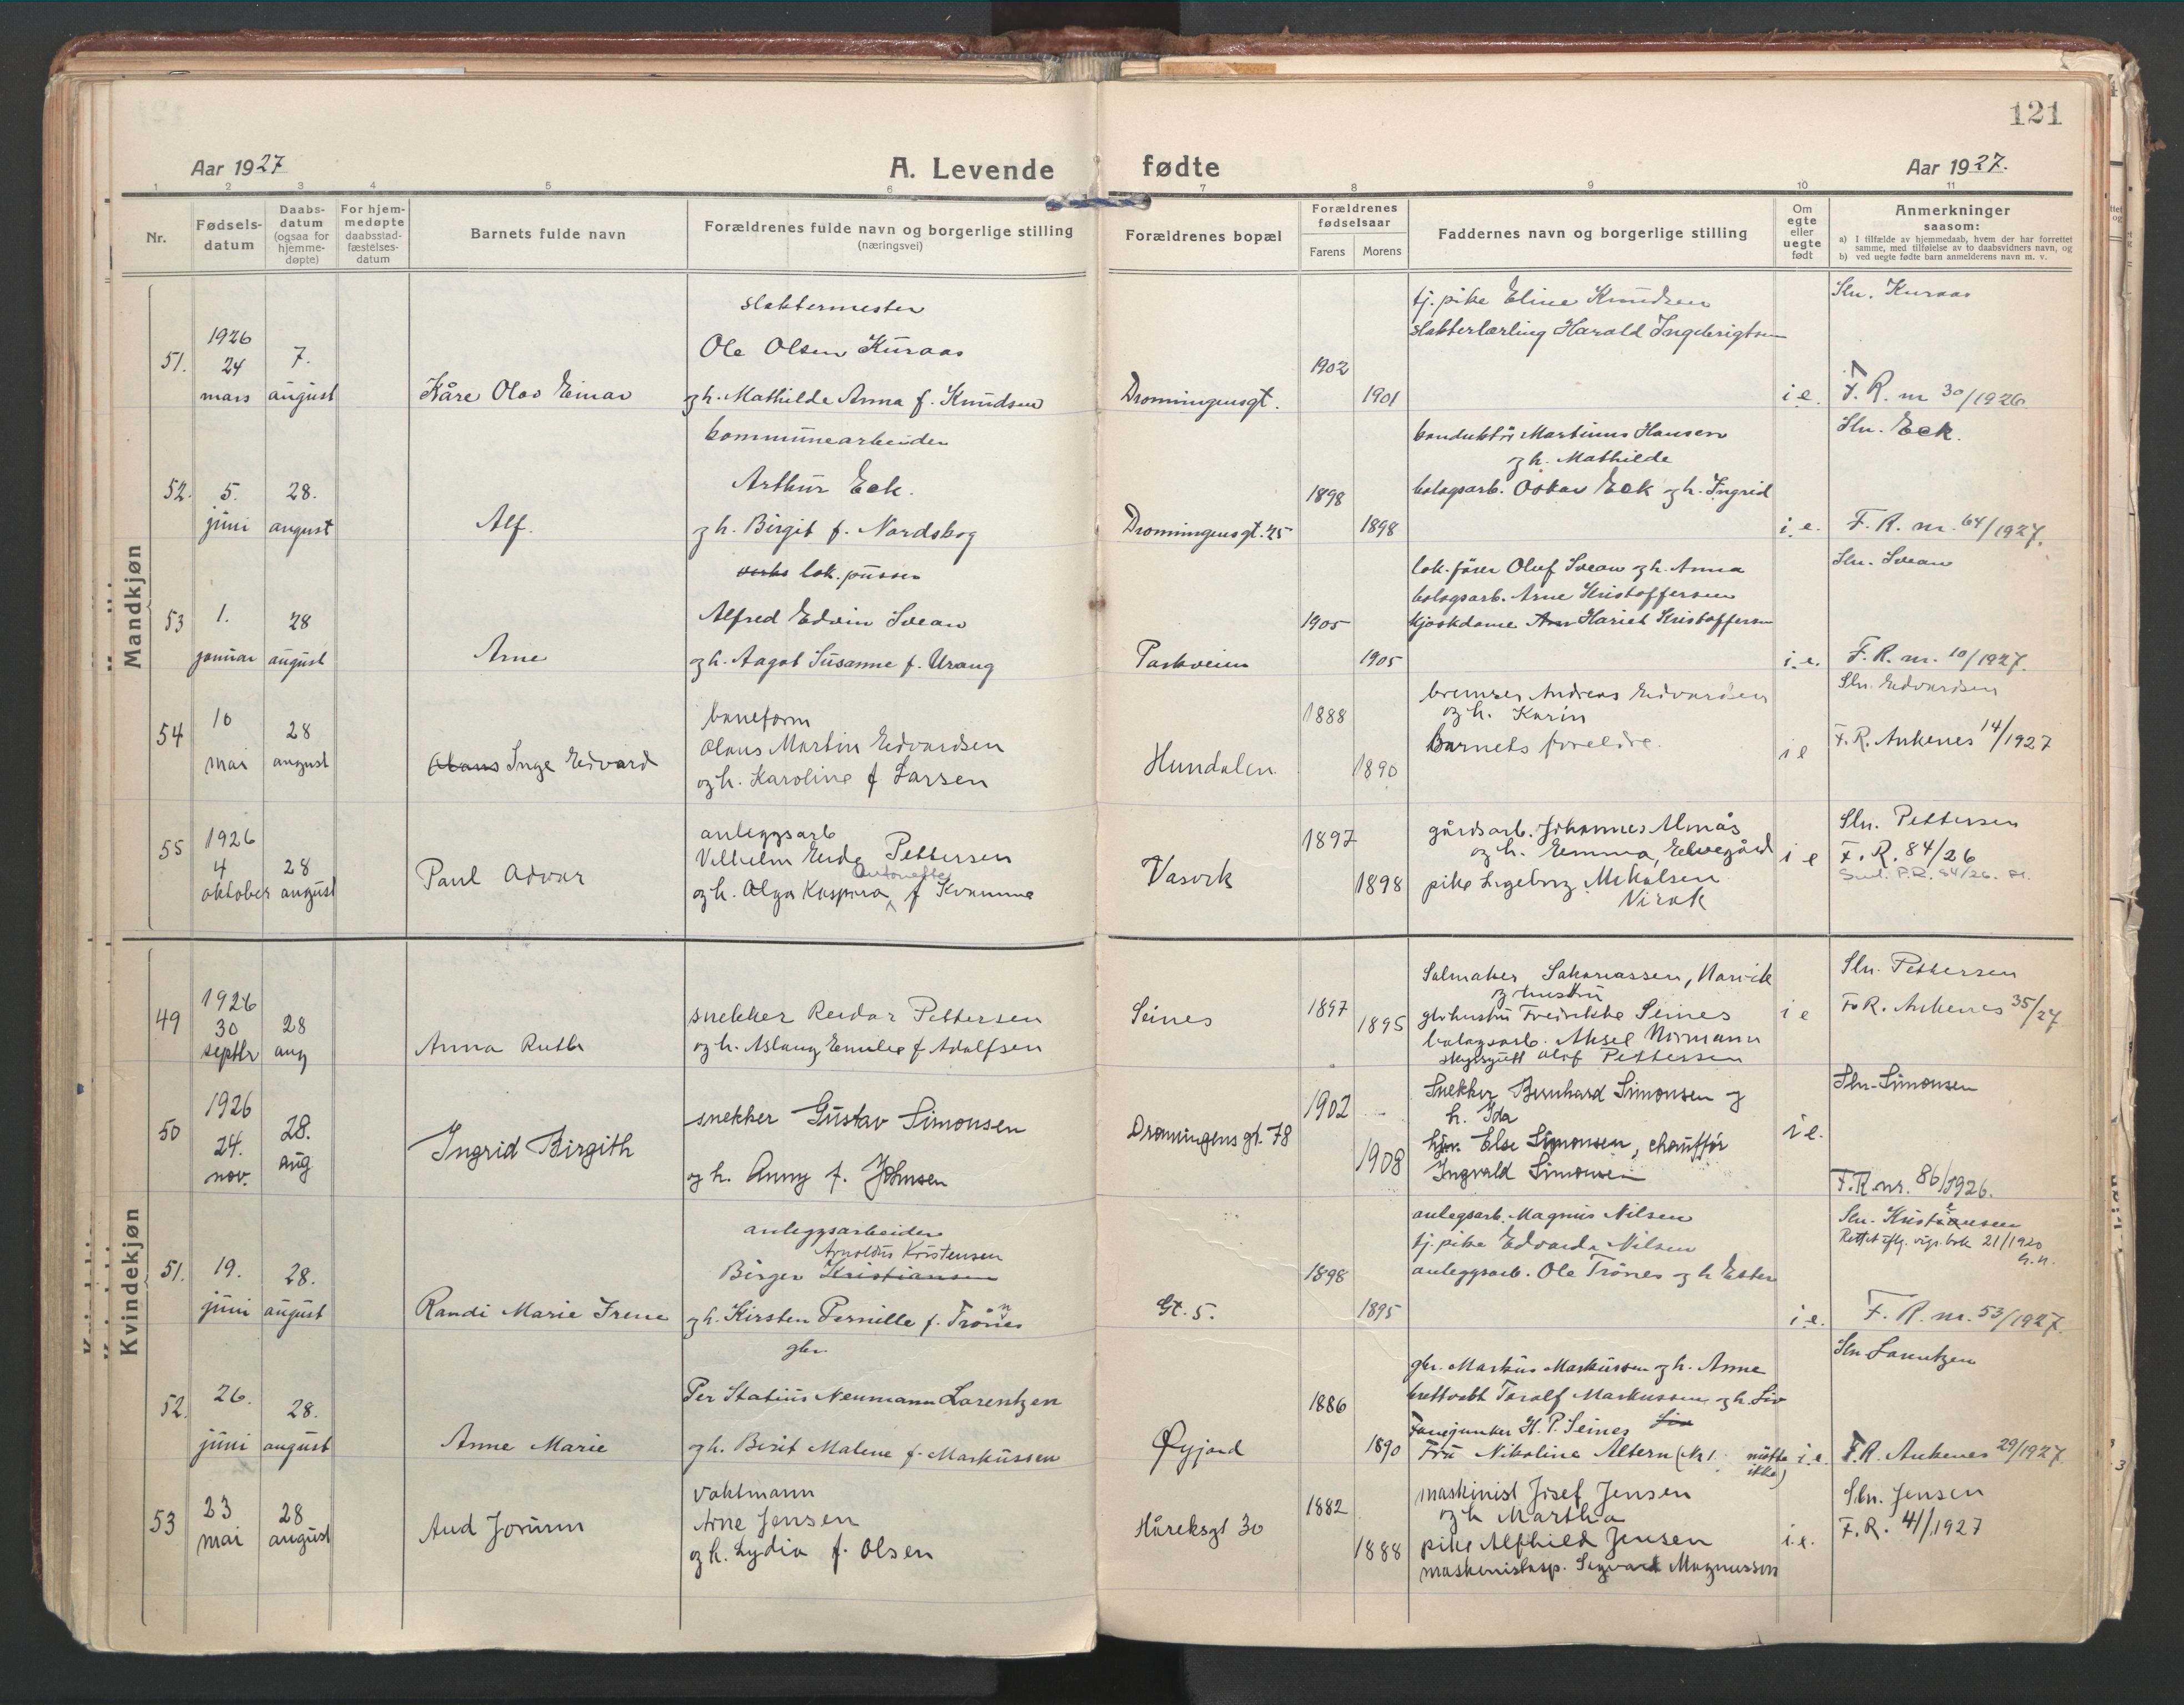 121
Aar 1927
A. Levende
fødte
Aar 1927.
1 2 3 4 5 6 7 8 9 10 11
Nr.
Fødsels-
datum
Daabs-
datum
(ogsaa for
hjemme-
døpte)
For hjem-
medøpte
daabsstad-
fæstelses-
datum
Barnets fulde navn
Forældrenes fulde navn og borgerlige stilling
(næringsvei)
Forældrenes bopæl
Forældrenes
fødselsaar
Farens
Morens
Faddernes navn og borgerlige stilling
Om
egte
eller
uegte
født
Anmerkninger
saasom:
a) I tilfælde av hjemmedaab, hvem der har forrettet
samme, med tilføielse av to daabsvidners navn, og
b) ved uegte fødte barn anmelderens navn m. v.
Mandkjøn
51.
1926
24
mars
7.
august
Kåre Olav Einar
slaktermester
Ole Olsen Kuraas
og h. Mathilde Anna f. Knudsen
Dronningensgt.
1902
1901
tj. pike Eline Knudsen
slakterlærling Harald Ingebrigtsen
i.e.
Sln. Kuraas
F. R. nr 30/1926.
52.
5.
juni
28.
august
Alf.
kommunearbeider
Arthur Eck.
og h. Birgit f. Nordskog
Dronningensgt. 25
1898
1898
konduktør Martinus Hansen
og h. Mathilde
bolagsarb. Oskar Eck og h. Ingrid
i.e.
Sln. Eck.
F. R. nr. 64/1927.
53
1.
januar
28
august
Arne
lok. pusser
Alfred Edvin Svean
og h. Aagot Susanne f. Urang
Parkveien
1905
1905
lok. fører Oluf Svean og h. Anna
bolagsarb. Arne Kristoffersen
kjoskdame Hariet Kristoffersen
i.e.
Sln. Svean
F. R. nr. 10/1927.
54
10
mai
28
august
Olaus Inge Edvard
baneform
Olaus Martin Edvardsen
og h. Karoline f Larsen
Hundalen
1888
1890
bremser Andreas Edvardsen
og h. Karin
Barnets foreldre.
i e
Sln. Edvardsen
F. R. Ankenes 14/1927
55
1926
4
oktober
28
august
Paul Advar
anleggsarb
Vilhelm Pettersen
Antonette
og h. Olga Kaspara f Kvamme
Vasvik
1897
1898
gårdsarb. Johannes Almås
og h. Emma, Elvegård
pike Ingeborg Mikalsen
i e
Sln. Pettersen
F. R. 84/26
Kvindekjøn
49
1926
30
septbr
28
aug
Anna Ruth
snekker Reidar Pettersen
og h. Aslaug Emilie f Adolfsen
Seines
1897
1895
Salmaker Sakariassen, Narvik
og hustru
gbr hustru Fredrikke Seines
bolagsarb. Aksel Normann
Olof Pettersen
i e
Sln. Pettersen
F. R. Ankenes 35/27
50
1926
24.
nov.
28.
aug
Ingrid Birgith
snekker Gustav Simonsen
og h. Anny f. Johnsen
Dronningens gt. 78
1902
1908
Snekker Bernhard Simonsen og
h. Ida
Else Simonsen, chauffør
Ingvald Simonsen
i e.
Sln. Simonsen
F. R. nr. 86/1926.
51.
19.
juni
28.
august
Randi Marie Irene
anleggsarbeider
Arnoldus Kristensen
Birger Kristiansen
og h. Kirsten Pernille f. Trönes
Gt. 5.
1898
1895
anlegsarb. Magnus Nilsen
tj. pike Edvarda Nilsen
anleggsarb. Ole Trönes og h Ester
i.e.
Sln. Kristensen
Rettet iflg. vigs. bok 21/1920
F. R. nr. 53/1927.
52.
26.
juni
28.
august
Anne Marie
gbr.
Per Statius Neumann Lorentzen
og h. Berit Malene f. Markussen
Øyjord
1886
1890
gbr. Markus Markussen og h. Anne
Toralf Markussen og h. Liv
Liv
Fanejunker H. P. Seines
Fru Nikoline Altern (Nr 1 møtte
ikke)
i.e.
Sln Lorentzen
F. R. Ankenes 29/1927.
53
23
mai
28
august
Aud Jorunn
vaktmann
Arne Jensen
og h. Lydia f. Olsen
Håreksgt 30
1882
1888
maskinist Josef Jensen
og h Martha
pike Alfhild Jensen
maskinistasp. Sigvard Magnussen
i.e.
Sln. Jensen
F. R. 41/1927